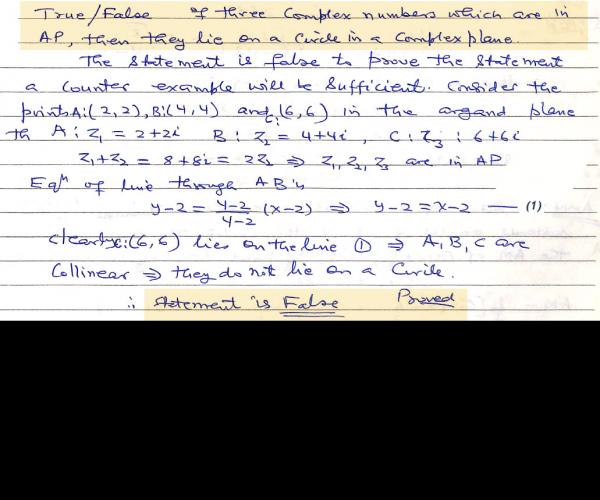 True/False If three Complex numbers which are in
AP, then they lie on a Circle in a Complex plane.
The Statement is false to prove the Statement
a counter example will be Sufficient. Consider the
points A:(2,2), B:(4,4) and C:(6,6) in the argand plane
th A: Z₁ = 2+2i B: Z₂ = 4+4i, C: Z₃ : 6+6i
Z₁+Z₂ = 8+8i = 2Z₂ ⇒ Z₁, Z₂, Z₃ are in AP
Eqⁿ of line through AB is
y-2 = 4-2/4-2 (x-2) ⇒ y-2 = x-2 — (1)
clearly C:(6,6) lies on the line ① ⇒ A, B, C are
Collinear ⇒ they do not lie on a Circle.
∴ Statement is False Proved